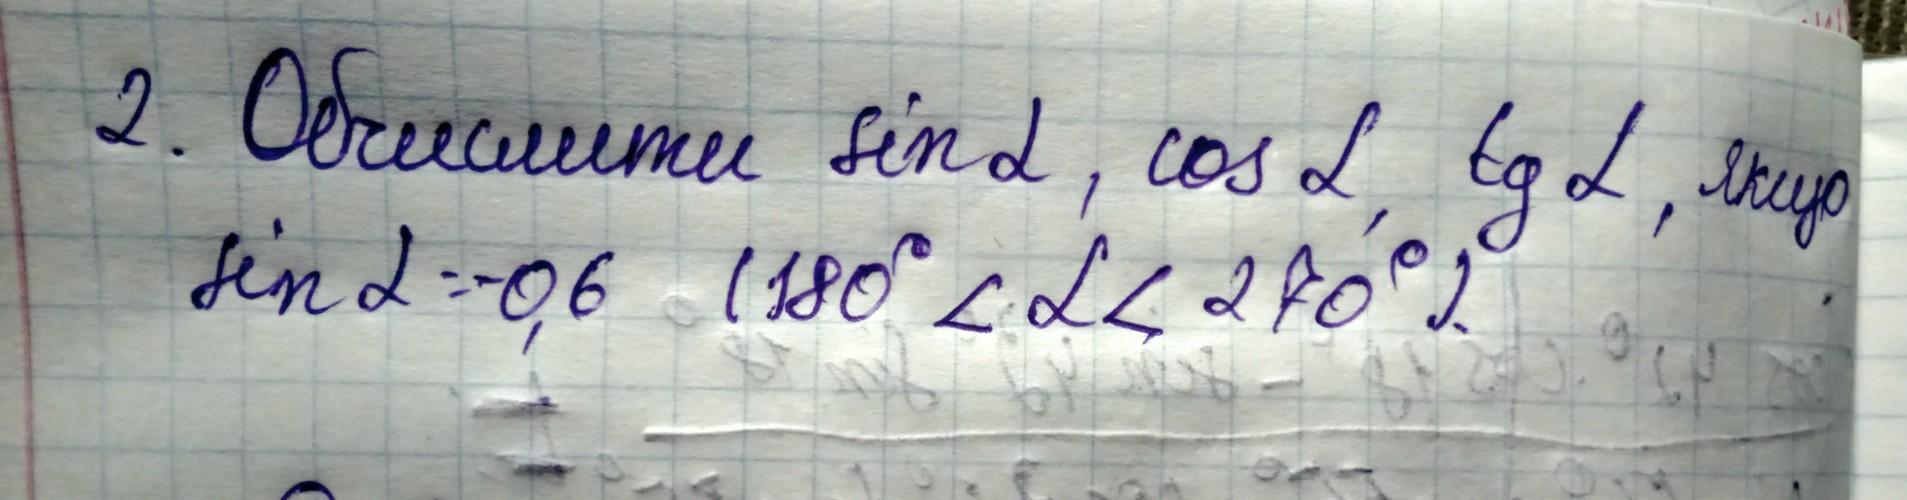 2. Обчислити sin α, cos α, tg α, якщо
sin α = -0,6 (180° < α < 270°).